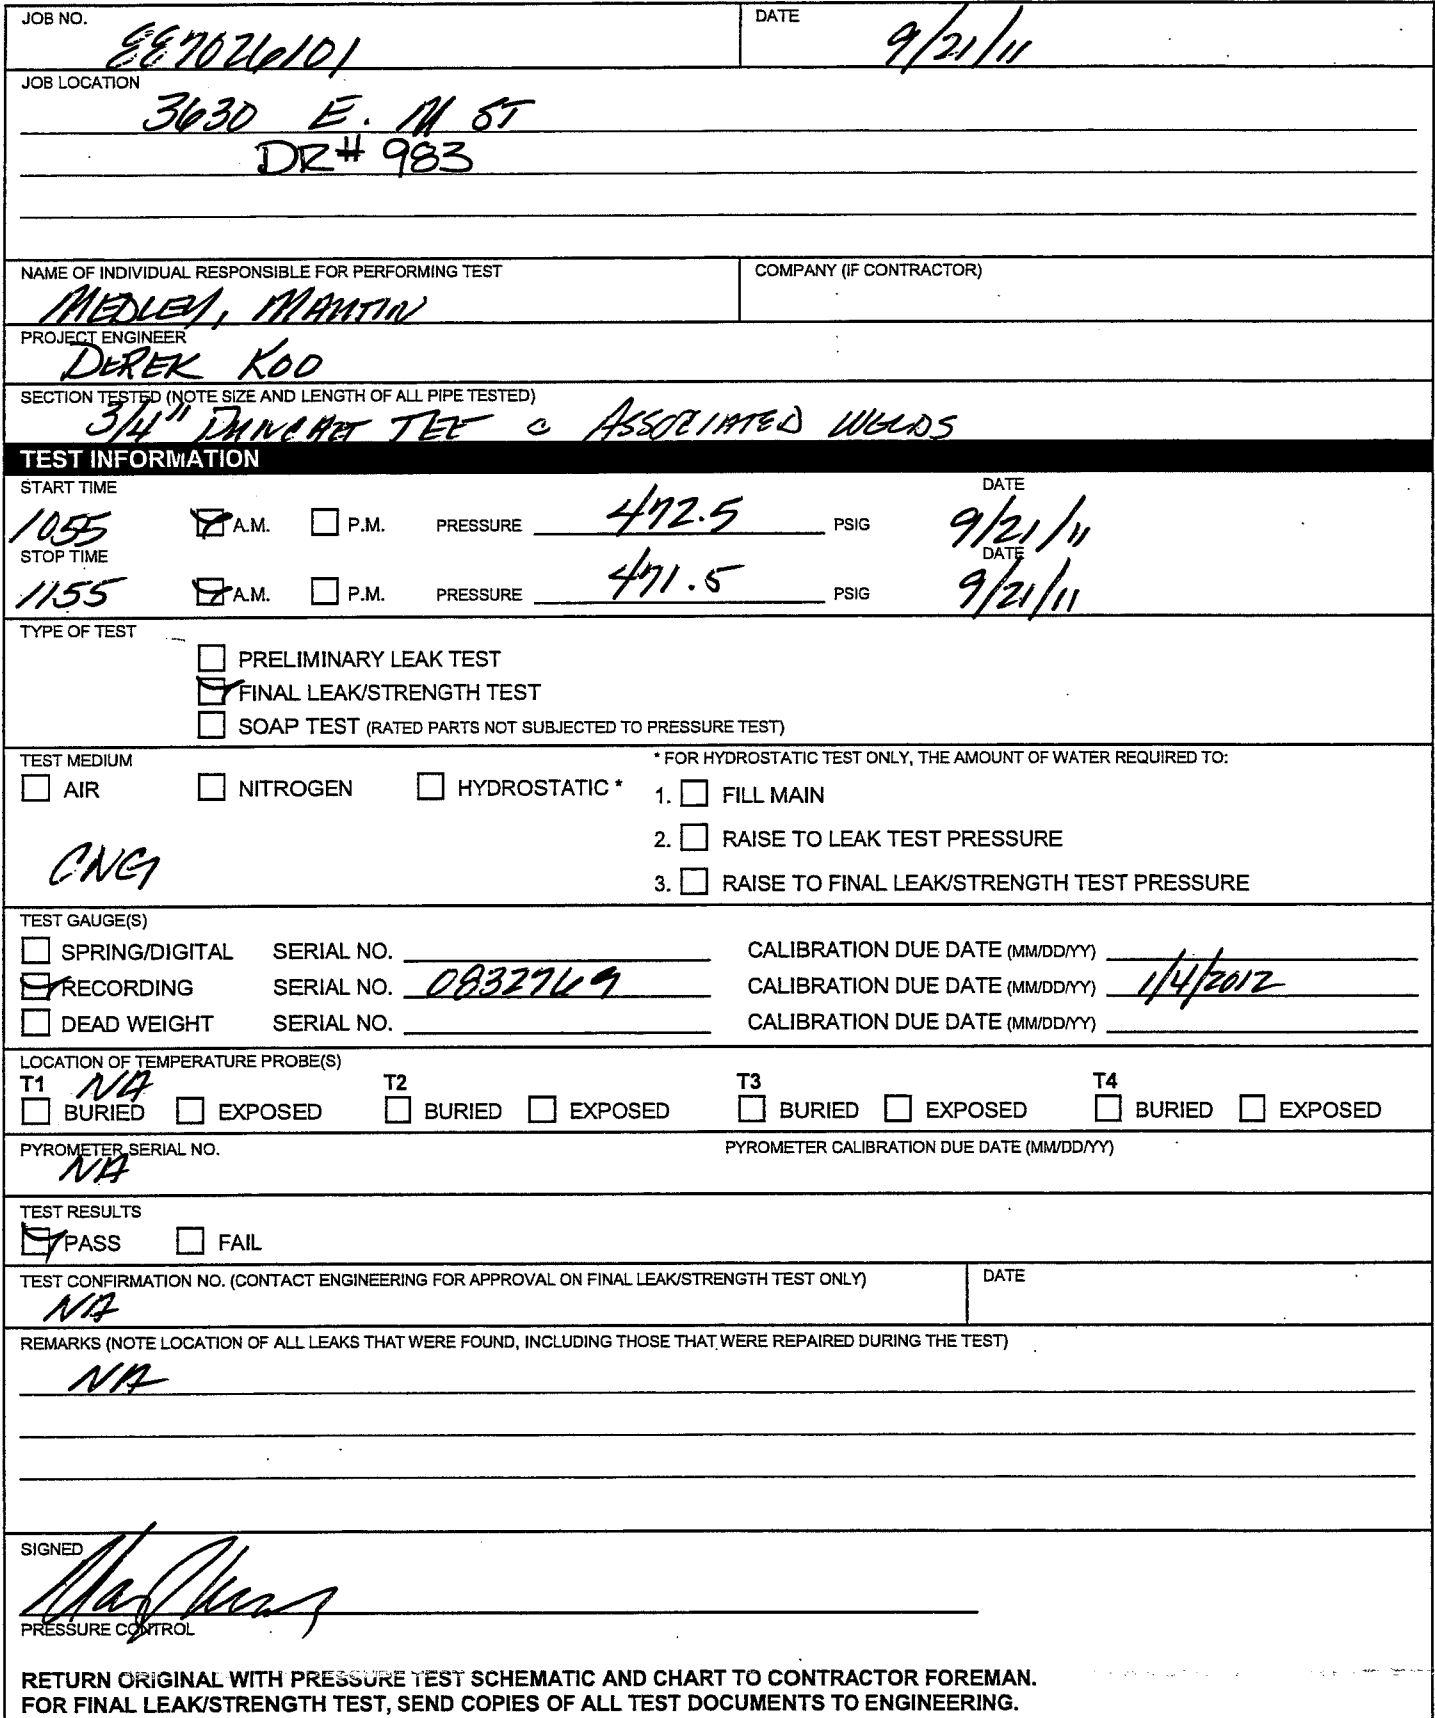 JOB NO.
DATE
9/21/11
JOB LOCATION
3630 E. M ST
DR# 983
NAME OF INDIVIDUAL RESPONSIBLE FOR PERFORMING TEST
COMPANY (IF CONTRACTOR)
MEDLEY, MARTIN
PROJECT ENGINEER
DEREK KOO
SECTION TESTED (NOTE SIZE AND LENGTH OF ALL PIPE TESTED)
3/4" TEE ASSOCIATED WELDS
TEST INFORMATION
START TIME
DATE
1055 A.M. P.M. PRESSURE 472.5 PSIG 9/21/11
STOP TIME
DATE
1155 A.M. P.M. PRESSURE 471.5 PSIG 9/21/11
TYPE OF TEST
PRELIMINARY LEAK TEST
FINAL LEAK/STRENGTH TEST
SOAP TEST (RATED PARTS NOT SUBJECTED TO PRESSURE TEST)
TEST MEDIUM
* FOR HYDROSTATIC TEST ONLY, THE AMOUNT OF WATER REQUIRED TO:
AIR NITROGEN HYDROSTATIC *
1. FILL MAIN
2. RAISE TO LEAK TEST PRESSURE
CNG
3. RAISE TO FINAL LEAK/STRENGTH TEST PRESSURE
TEST GAUGE(S)
SPRING/DIGITAL SERIAL NO. CALIBRATION DUE DATE (MM/DD/YY)
RECORDING SERIAL NO. 0832769 CALIBRATION DUE DATE (MM/DD/YY) 1/4/2012
DEAD WEIGHT SERIAL NO. CALIBRATION DUE DATE (MM/DD/YY)
LOCATION OF TEMPERATURE PROBE(S)
T1 NA T2 T3 T4
BURIED EXPOSED BURIED EXPOSED BURIED EXPOSED BURIED EXPOSED
PYROMETER SERIAL NO.
PYROMETER CALIBRATION DUE DATE (MM/DD/YY)
NA
TEST RESULTS
PASS FAIL
TEST CONFIRMATION NO. (CONTACT ENGINEERING FOR APPROVAL ON FINAL LEAK/STRENGTH TEST ONLY)
DATE
NA
REMARKS (NOTE LOCATION OF ALL LEAKS THAT WERE FOUND, INCLUDING THOSE THAT WERE REPAIRED DURING THE TEST)
NA
SIGNED
PRESSURE CONTROL
RETURN ORIGINAL WITH PRESSURE TEST SCHEMATIC AND CHART TO CONTRACTOR FOREMAN.
FOR FINAL LEAK/STRENGTH TEST, SEND COPIES OF ALL TEST DOCUMENTS TO ENGINEERING.